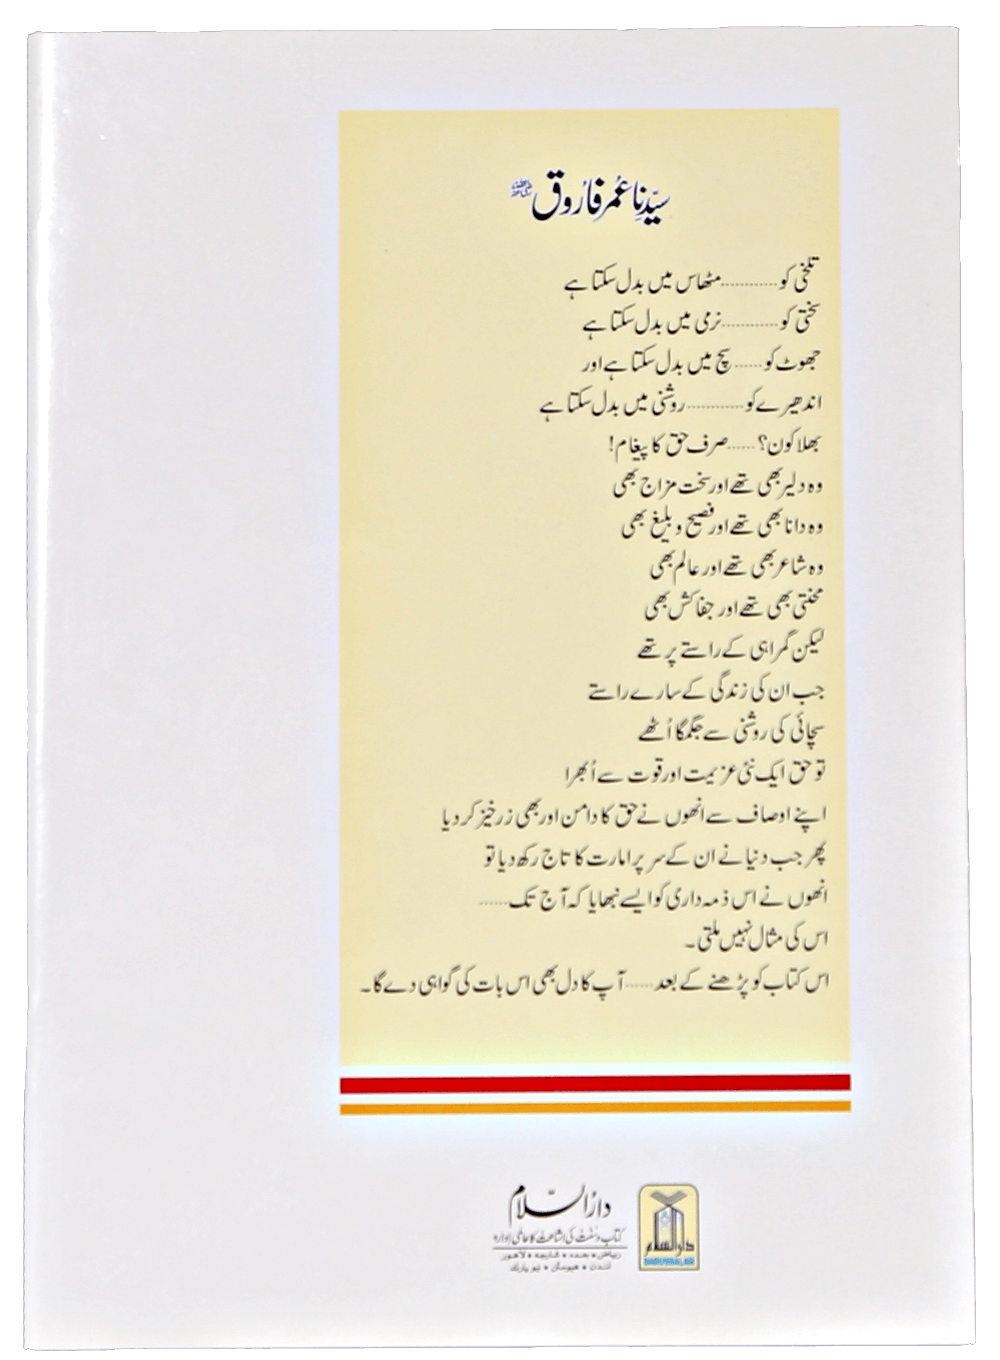 سیّدنا عُمر فارُوق رضی اللہ عنہ
تلخی کو............مٹھاس میں بدل سکتا ہے
سختی کو............نرمی میں بدل سکتا ہے
جھوٹ کو......سچ میں بدل سکتا ہے اور
اندھیرے کو............روشنی میں بدل سکتا ہے
بھلا کون؟......صرف حق کا پیغام!
وہ دلیر بھی تھے اور سخت مزاج بھی
وہ دانا بھی تھے اور فصیح و بلیغ بھی
وہ شاعر بھی تھے اور عالم بھی
محنتی بھی تھے اور جفاکش بھی
لیکن گمراہی کے راستے پر تھے
جب ان کی زندگی کے سارے راستے
سچائی کی روشنی سے جگمگا اُٹھے
تو حق ایک نئی عزیمت اور قوت سے اُبھرا
اپنے اوصاف سے انھوں نے حق کا دامن اور بھی زرخیز کر دیا
پھر جب دنیا نے ان کے سر پر امارت کا تاج رکھ دیا تو
انھوں نے اس ذمہ داری کو ایسے نبھایا کہ آج تک......
اس کی مثال نہیں ملتی۔
اس کتاب کو پڑھنے کے بعد......آپ کا دل بھی اس بات کی گواہی دے گا۔
دارُالسّلام
کتاب و سُنّت کی اشاعت کا عالمی ادارہ
ریاض • جدہ • شارجہ • لاهور
لندن • هیوسٹن • نیو یارک
دارالسلام
DARUSSALAM